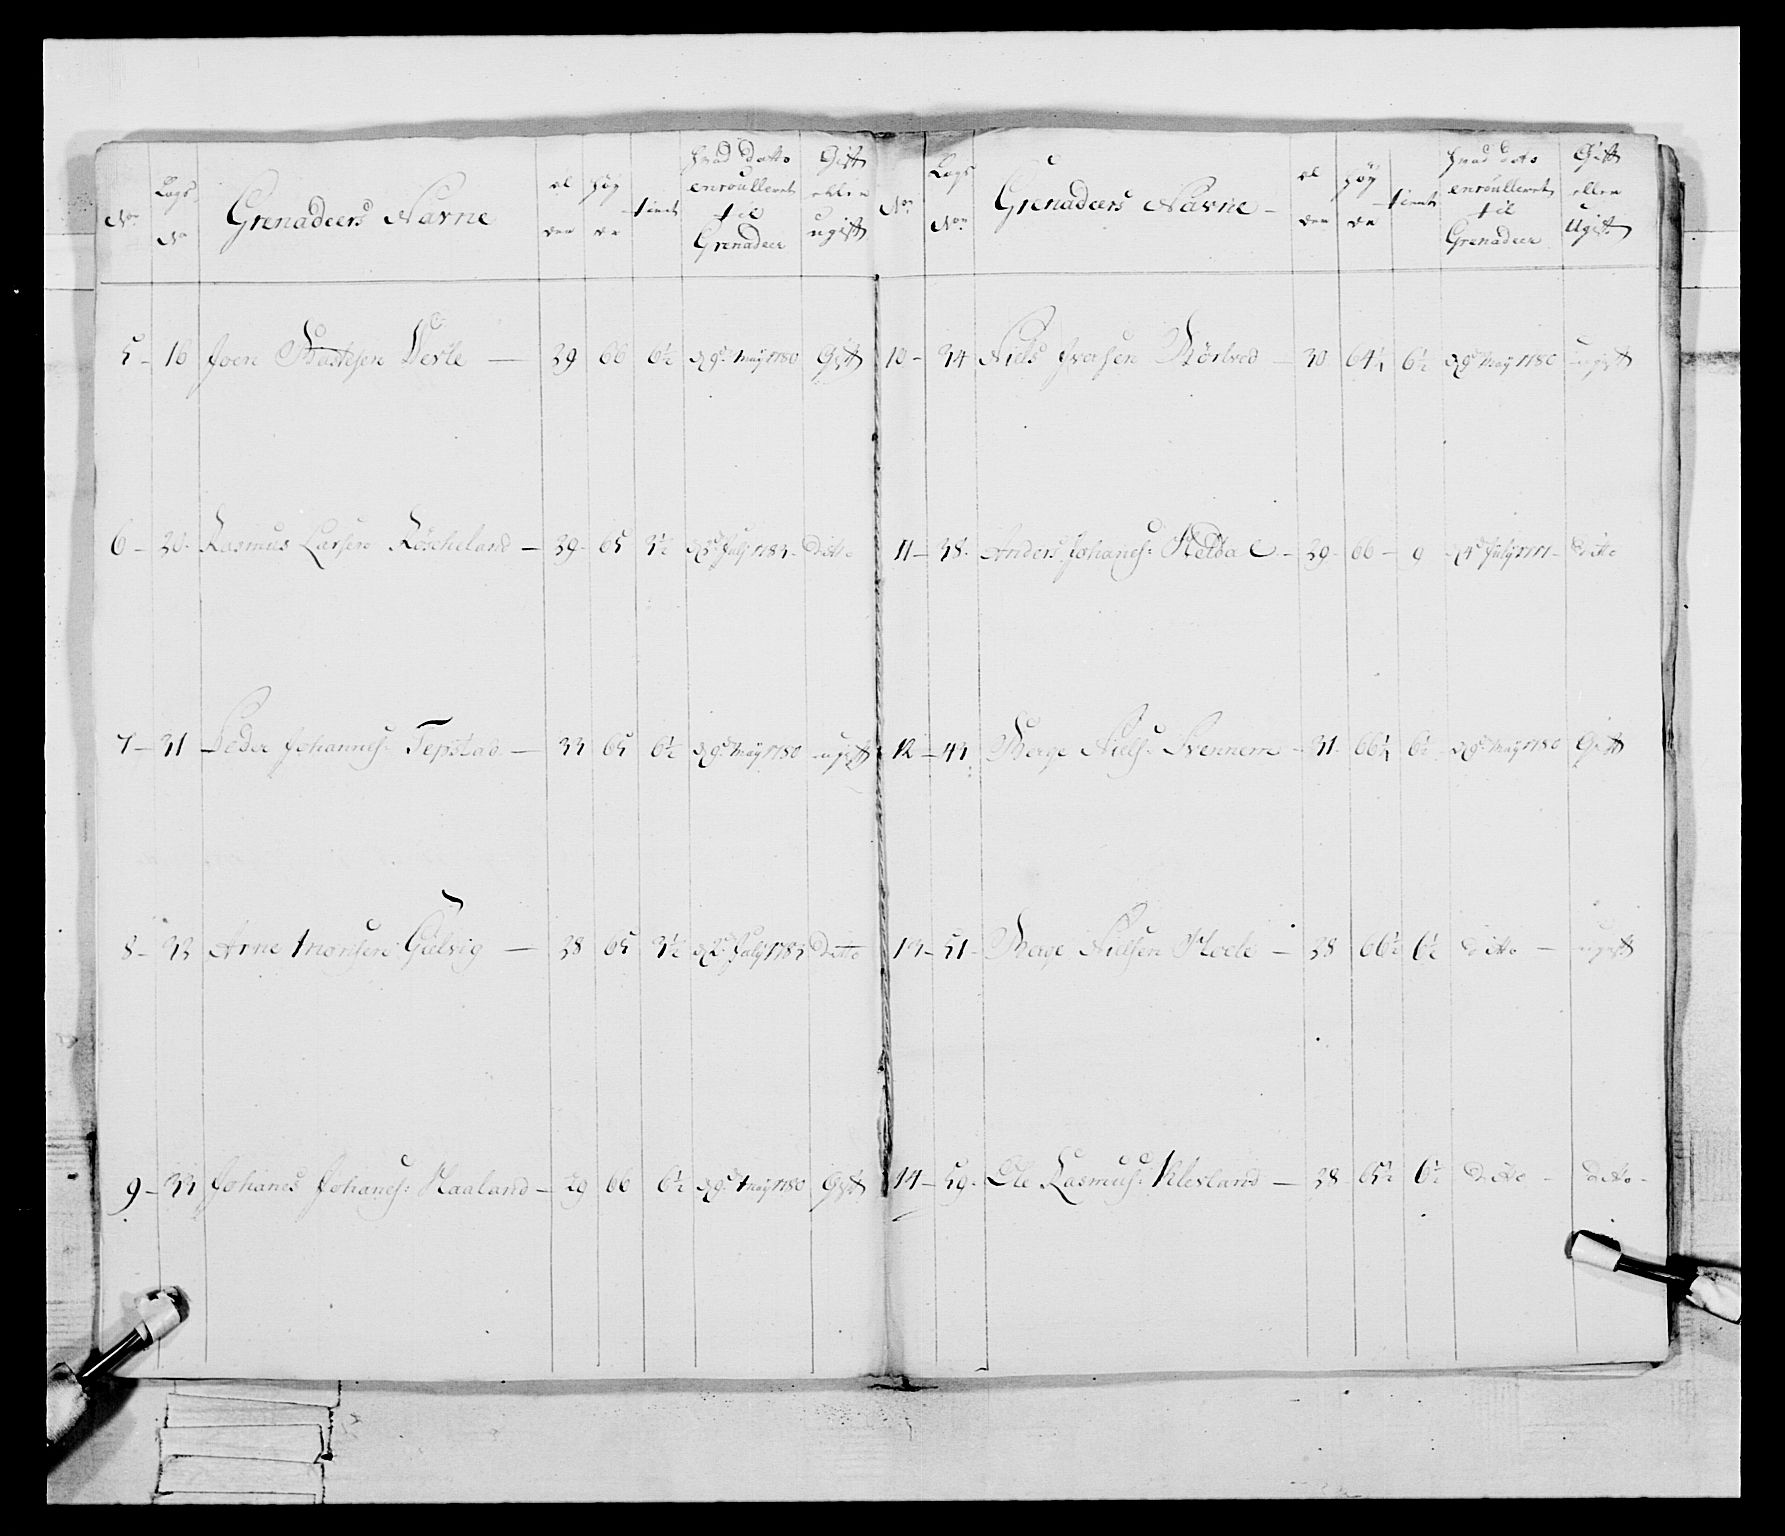 No. Lags No. Grenadeers Navne al der høy de tient hvad datto enroulleret til Grenadeer Gift eller ugift
5 - 16 Joen Desle — 39 66 6½ d 9d May 1780 Gift
6 - 30 - Rasmus Larsen Roscheland — 39 - 65 3½ July 1783 - ditto
7 - 31 Peder Johannes: Tepstad — 33 65 6½ d 9d May 1780 - ugift
8 - 33 Arne Monsen Gielvig — 38 65 3½ July 1783 Ditto
9 - 33 Johanes Johanes: Haaland — 29 66 6½ d 9d May 1780 Gift
No. Lags No. Grenadeers Navne - al der høy de tient hvad dato enroulleret til Grenadeer Gift eller Ugift
10 - 34 Niels Iversen — 30 64½ 6½ d 9d May 1780 ugift
11 - 38 - Anders Johanes: Heldal - 39 - 66 - 9 d 4d July 1777 - ditto
12 - 43 Børge Niels: Svennem - 31 - 66½ 6½ d 9d May 1780 Gift
13 - 51 - Børge Nielsen — 38 66½ 6½ ditto — ugift
14 - 59 - Ole Rasmus: — 38 65½ 6½ ditto - ditto -